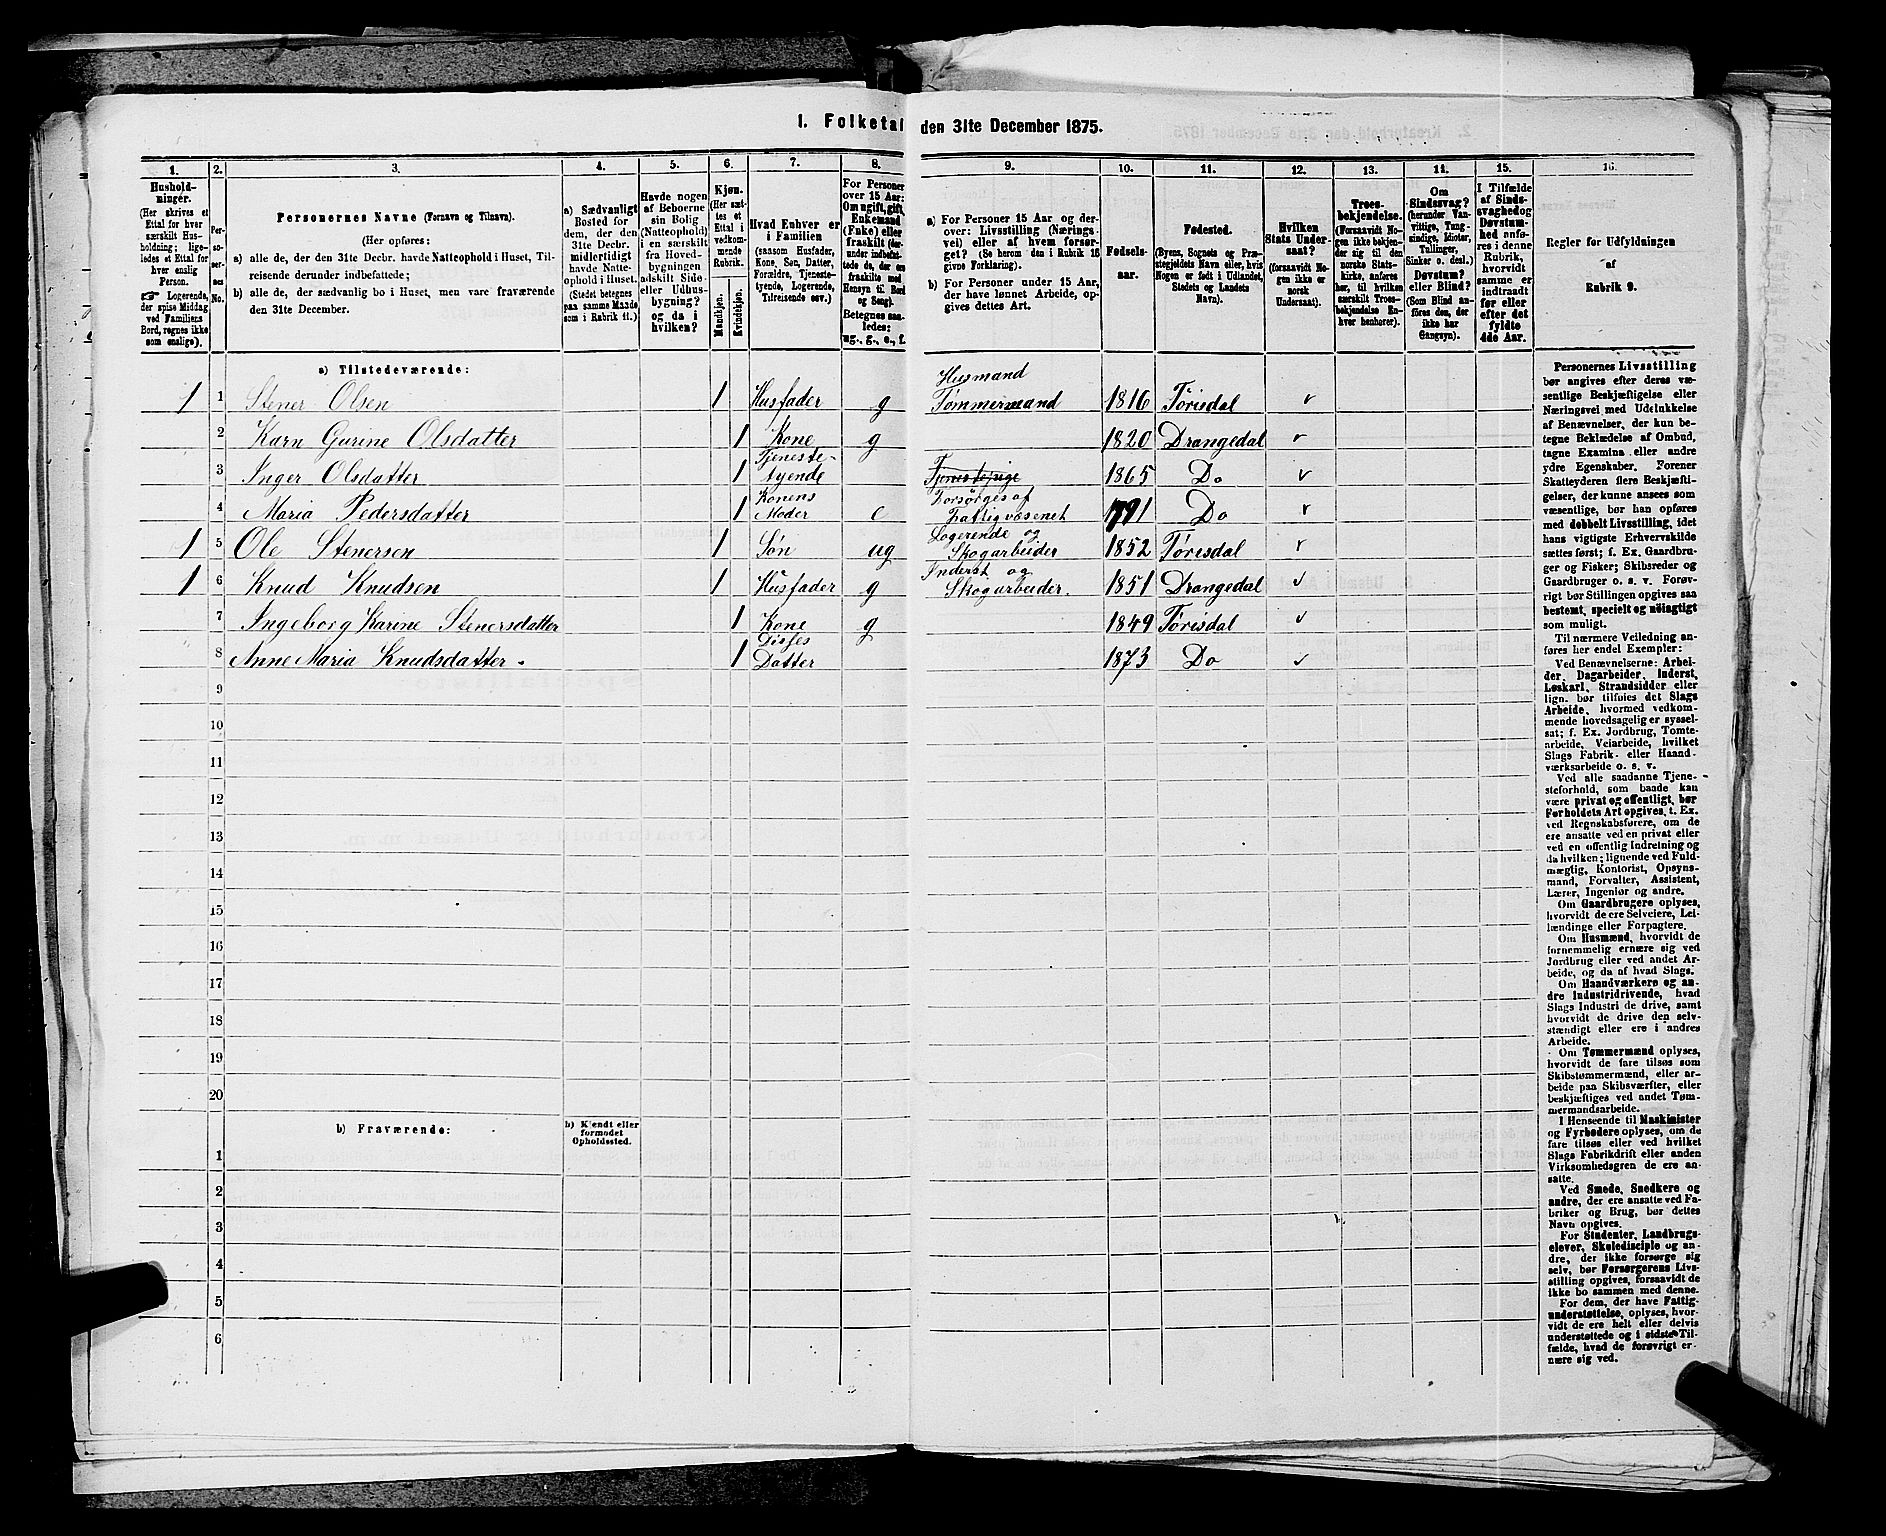 1. Folketal den 31te December 1875.
1. 2. 3. 4. 5. 6. 7. 8. 9. 10. 11. 12. 13. 14. 15. 16.
Hushold-
ninger.
(Her skrives et
Ettal for hver
særskilt Hus-
holdning; lige-
ledes et Ettal for
hver enslig
Person.
☞ Logerende,
der spise Middag
ved Familiens
Bord, regnes ikke
som enslige).
Per-
so-
ner-
nes
No.
Personernes Navne (Fornavn og Tilnavn).
(Her opføres:
a) alle de, der den 31te Decbr. havde Natteophold i Huset, Til-
reisende derunder indbefattede;
b) alle de, der sædvanlig bo i Huset, men vare fraværende
den 31te December.
a) Sædvanligt
Bosted for
dem, der den
31te Decbr.
midlertidigt
havde Natte-
ophold i Huset.
(Stedet betegnes
paa samme Maade
som i Rubrik 11.)
Havde nogen
af Beboerne
sin Bolig
(Natteophold)
i en særskilt
fra Hoved-
bygningen
adskilt Side-
eller Udhus-
bygning?
og da i
hvilken?
Kjøn.
(Her sæt-
tes et
Ettal i
vedkom-
mende
Rubrik.
Mandkjøn.
Kvindekjøn.
Hvad Enhver er
i Familien
(saasom Husfader,
Kone, Søn, Datter,
Forældre, Tjeneste-
tyende, Logerende,
Tilreisende osv.)
For Personer
over 15 Aar:
Om ugift, gift,
Enkemand
(Enke) eller
fraskilt (der-
under indbefat-
tede de, der ere
fraskilte med
Hensyn til Bord
og Seng).
Betegnes saa-
ledes:
ug., g., e., f.
a) For Personer 15 Aar og der-
over: Livsstilling (Nærings-
vei) eller af hvem forsør-
get? (Se herom den i Rubrik 16
givne Forklaring).
b) For Personer under 15 Aar,
der have lønnet Arbeide, op-
gives dettes Art.
Fødsels-
aar.
Fødested.
(Byens, Sognets og Præ-
stegjeldets Navn eller, hvis
Nogen er født i Udlandet,
Stedets og Landets
Navn).
Hvilken
Stats Under-
saat?
(forsaavidt No-
gen ikke er
norsk
Undersaat).
Troes-
bekjendelse.
(Forsaavidt No-
gen ikke bekjen-
der sig til den
norske Stats-
kirke, anføres
her, til hvilken
særskilt Troes-
bekjendelse En-
hver henhører).
Om
Sindssvag?
(herunder Van-
vittige, Tung-
sindige, Idioter,
Tullinger,
Sinker o. desl.)
Døvstum?
eller Blind?
(Som Blind an-
føres den, der
ikke har
Gangsyn).
I Tilfælde
af Sinds-
svaghed og
Døvstum-
hed anfø-
res i denne
Rubrik,
hvorvidt
samme er
indtraadt
før eller
efter det
fyldte
4de Aar.
Regler for Udfyldningen
af
Rubrik 9.
a) Tilstedeværende:
Husmand
1 1 Stener Olsen 1 Husfader g Tømmermand 1816 Tørisdal v
2 Karn Gurine Olsdatter 1 Kone g 1820 Drangedal v
Tjeneste-
3 Inger Olsdatter 1 tyende Tjenestepige 1865 Do v
Konens Forsørges af
4 Maria Pedersdatter 1 Moder e Fattigvæsenet 1791 Do v
Logerende og
1 5 Ole Stenersen 1 Søn ug Skogarbeider 1852 Tørisdal v
Inderst og
1 6 Knud Knudsen 1 Husfader g Skogarbeider. 1851 Drangedal v
7 Ingeborg Karine Stenersdatter 1 Kone g 1849 Tørisdal v
Disses
8 Anne Maria Knudsdatter. 1 Datter 1873 Do v
9
10
11
12
13
14
15
16
17
18
19
20
b) Fraværende:
b) Kjendt eller
formodet
Opholdssted.
1
2
3
4
5
6
Personernes Livsstilling
bør angives efter deres væ-
sentlige Beskjæftigelse eller
Næringsvei med Udelukkelse
af Benævnelser, der kun be-
tegne Beklædelse af Ombud,
tagne Examina eller andre
ydre Egenskaber. Forener
Skatteyderen flere Beskjæfti-
gelser, der kunne ansees som
væsentlige, bør han opføres
med dobbelt Livsstilling, idet
hans vigtigste Erhvervskilde
sættes først; f. Ex. Gaardbru-
ger og Fisker; Skibsreder og
Gaardbruger o. s. v. Forøv-
rigt bør Stillingen opgives saa
bestemt, specielt og nøiagtigt
som muligt.
Til nærmere Veiledning an-
føres her endel Exempler:
Ved Benævnelserne: Arbei-
der, Dagarbeider, Inderst,
Løskarl, Strandsidder eller
lign. bør tilføies det Slags
Arbeide, hvormed vedkom-
mende hovedsagelig er syssel-
sat; f. Ex. Jordbrug, Tomte-
arbeide, Veiarbeide, hvilket
Slags Fabrik- eller Haand-
værksarbeide o. s. v.
Ved alle saadanne Tjene-
steforhold, som baade kan
være privat og offentligt, bør
Forholdets Art opgives, t. Ex.
ved Regnskabsførere, om de
ere ansatte ved en privat eller
ved en offentlig Indretning og
da hvilken; lignende ved Fuld-
mægtig, Kontorist, Opsyns-
mand, Forvalter, Assistent,
Lærer, Ingeniør og andre.
Om Gaardbrugere oplyses,
hvorvidt de ere Selveiere, Lei-
lændinge eller Forpagtere.
Om Husmænd, hvorvidt de
fornemmelig ernære sig ved
Jordbrug eller ved andet Ar-
beide, og da af hvad Slags.
Om Haandværkere og an-
dre Industridrivende, hvad
Slags Industri de drive, samt
hvorvidt de drive den selv-
stændigt eller ere i andres
Arbeide.
Om Tømmermænd oplyses,
hvorvidt de fare tilsøs som
Skibstømmermænd, eller ar-
beide paa Skibsværfter, eller
beskjæftiges ved andet Tøm-
mermandsarbeide.
I Henseende til Maskinister
og Fyrbødere oplyses, om de
fare tilsøs eller ved hvilket
Slags Fabrikdrift eller anden
Virksomhedsgren de ere an-
satte.
Ved Smede, Snedkere og
andre, der ere ansatte ved Fa-
briker og Brug, bør dettes
Navn opgives.
For Studenter, Landbrugs-
elever, Skoledisciple og an-
dre, der ikke forsørge sig
selv, bør Forsørgerens Livs-
stilling opgives, forsaavidt de
ikke bo sammen med denne.
For dem, der have Fattig-
understøttelse, oplyses, hvor-
vidt de ere helt eller delvis
understøttede og i sidste Til-
fælde, hvad de forøvrigt er-
nære sig ved.